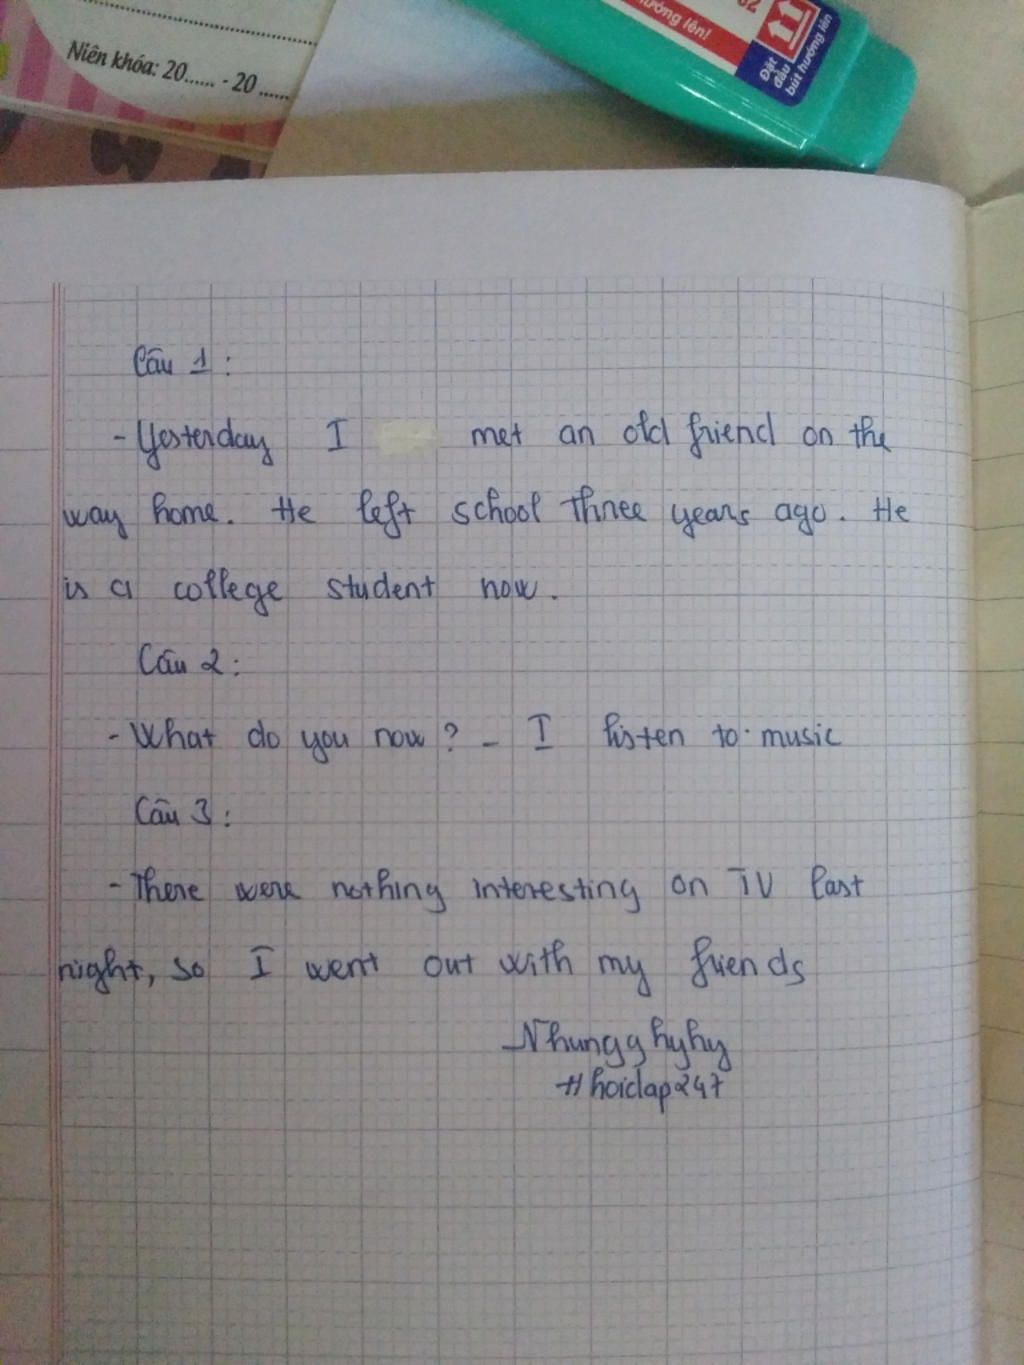 Niên khóa: 20...... - 20......
hướng lên!
Đặt
đầu
bút hướng lên
Câu 1:
- Yesterday I met an old friend on the
way home. He left school three years ago. He
is a college student now.
Câu 2:
- What do you now? - I listen to music
Câu 3:
- There were nothing interesting on TV last
night, so I went out with my friends
Nhungghyhy
#hoidap247